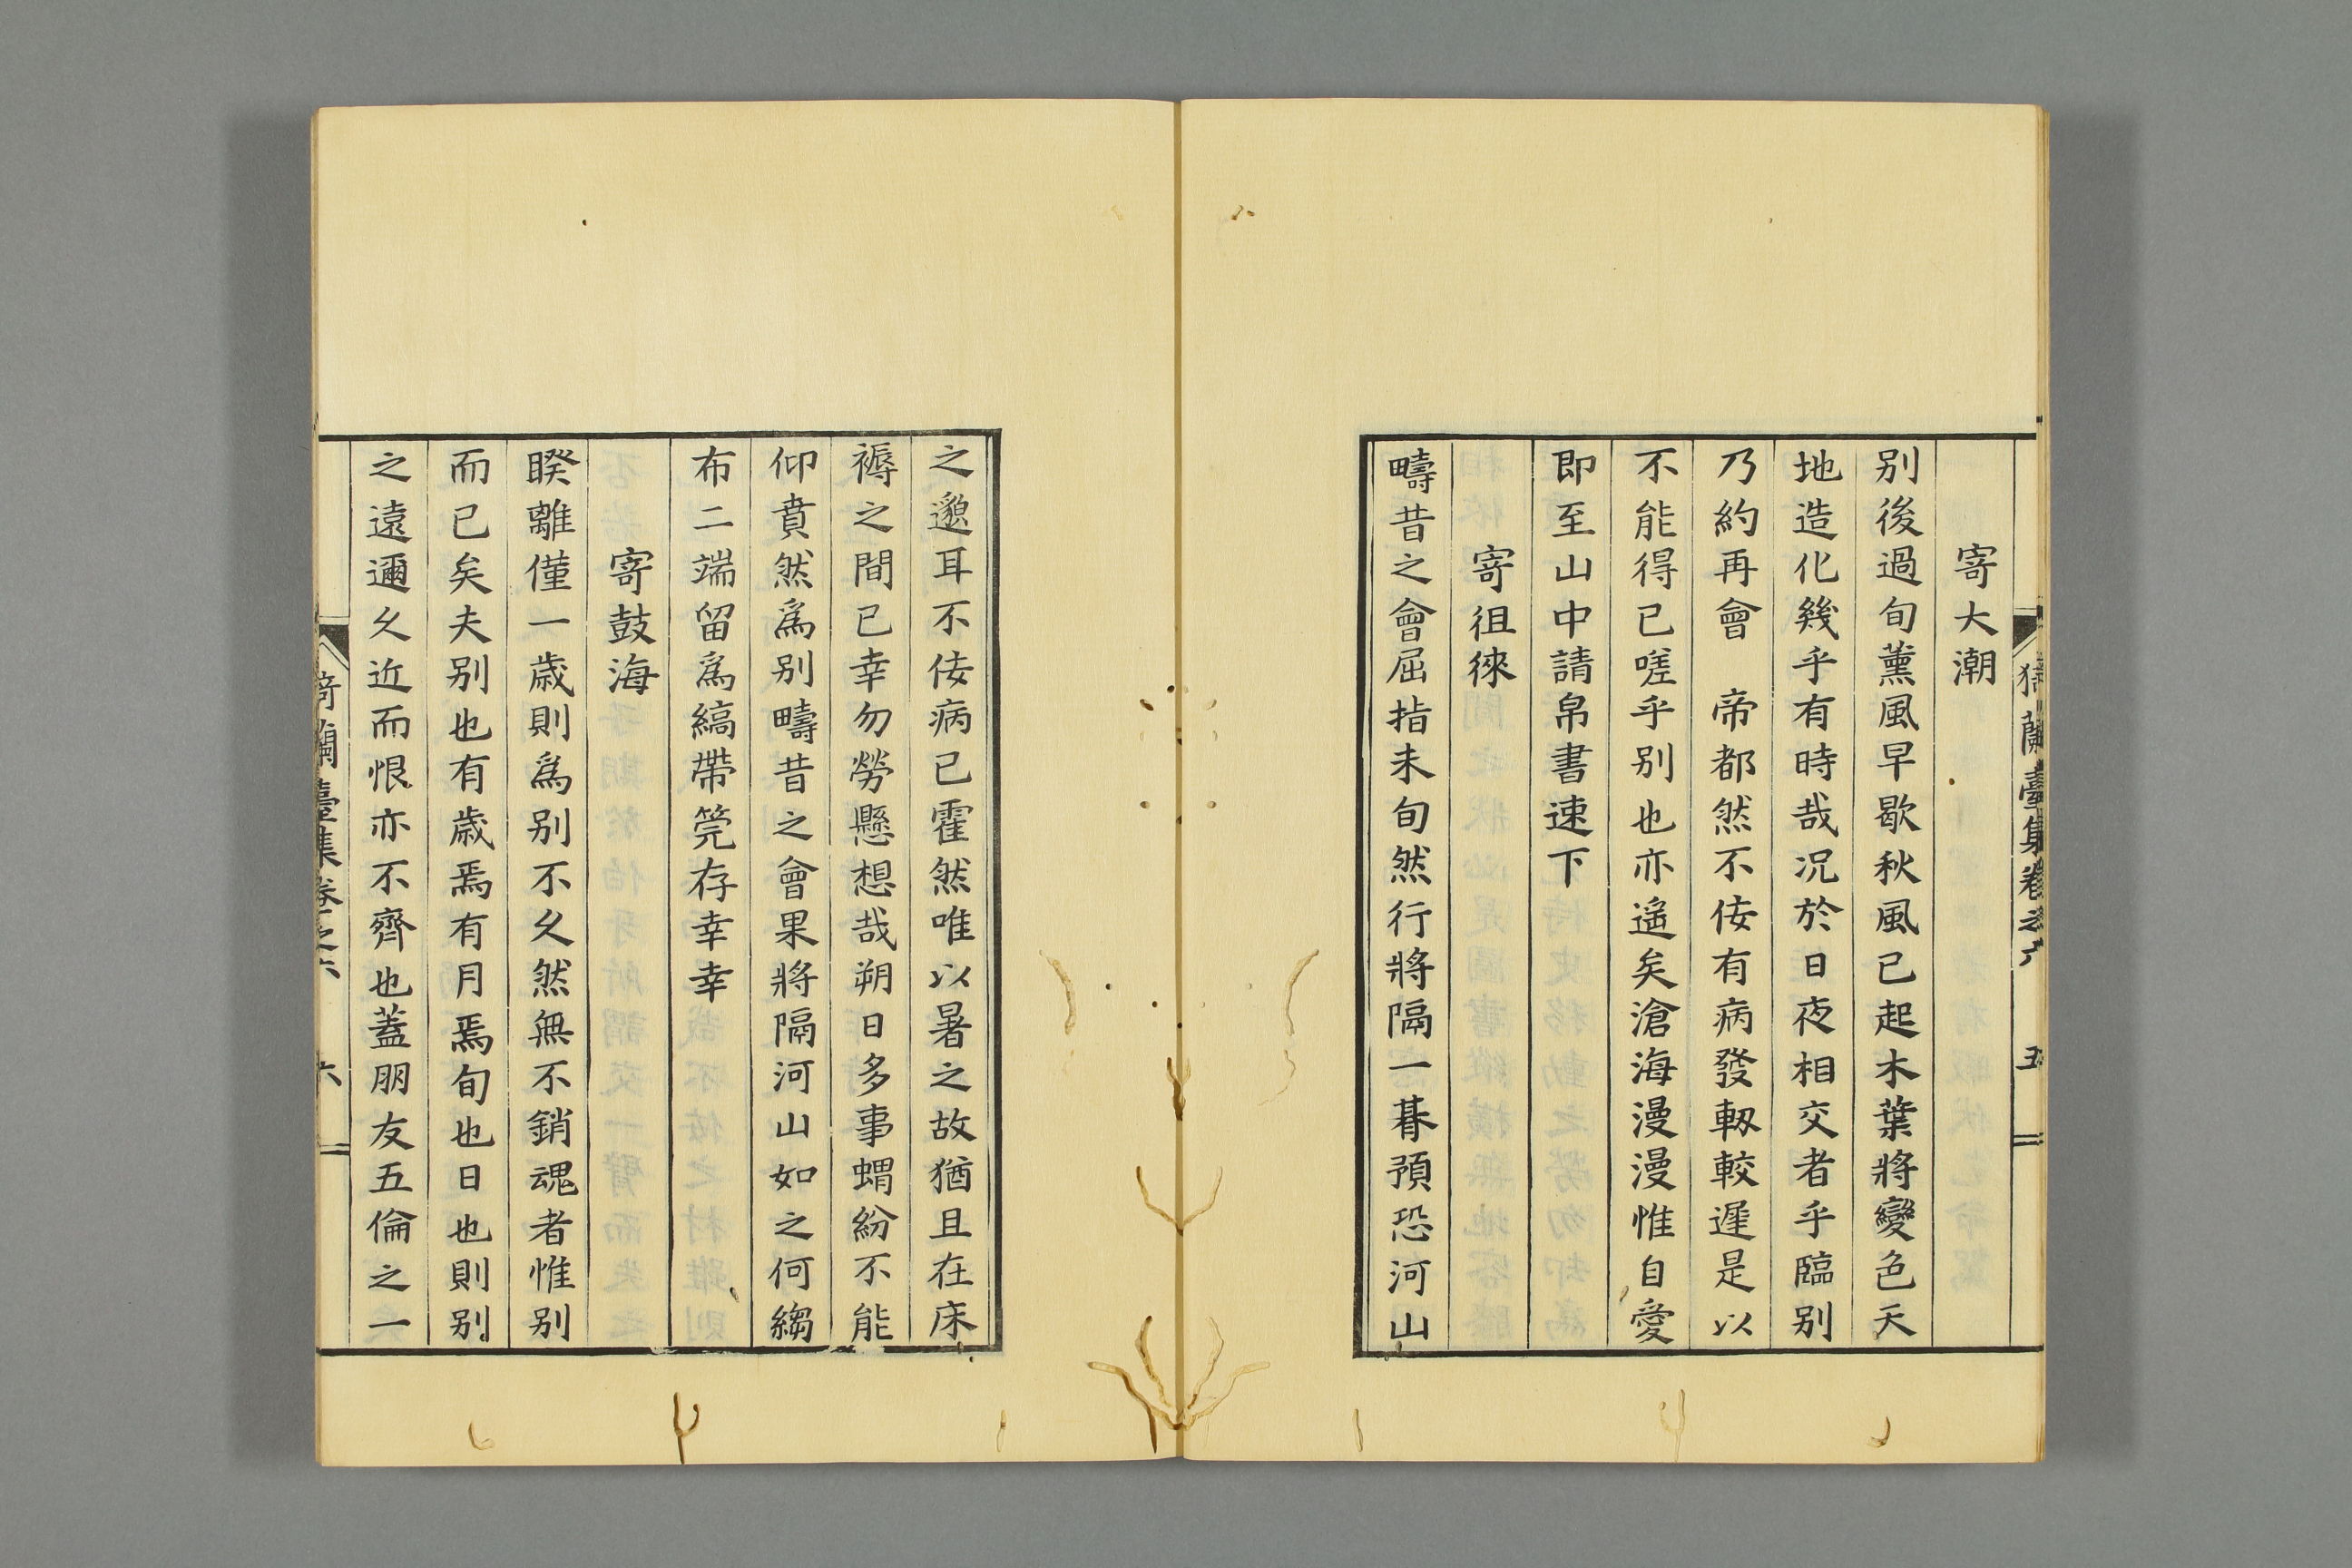 猗蘭臺集卷之六 五
寄大潮
别後過旬薰風早歇秋風已起木葉將變色天
地造化幾乎有時哉况於日夜相交者乎臨别
乃約再會 帝都然不佞有病發軔較遲是以
不能得已嗟乎别也亦遙矣滄海漫漫惟自愛
即至山中請帛書速下
寄徂徠
疇昔之會屈指未旬然行將隔一朞預恐河山
之邈耳不佞病已霍然唯以暑之故猶且在床
褥之間已幸勿勞懸想哉朔日多事蝟紛不能
仰賁然爲别疇昔之會果將隔河山如之何縐
布二端留爲縞帶筦存幸幸
寄鼓海
睽離僅一歳則爲别不久然無不銷魂者惟别
而已矣夫别也有歳焉有月焉旬也日也則别
之遠邇久近而恨亦不齊也蓋朋友五倫之一
猗蘭臺集卷之六 六